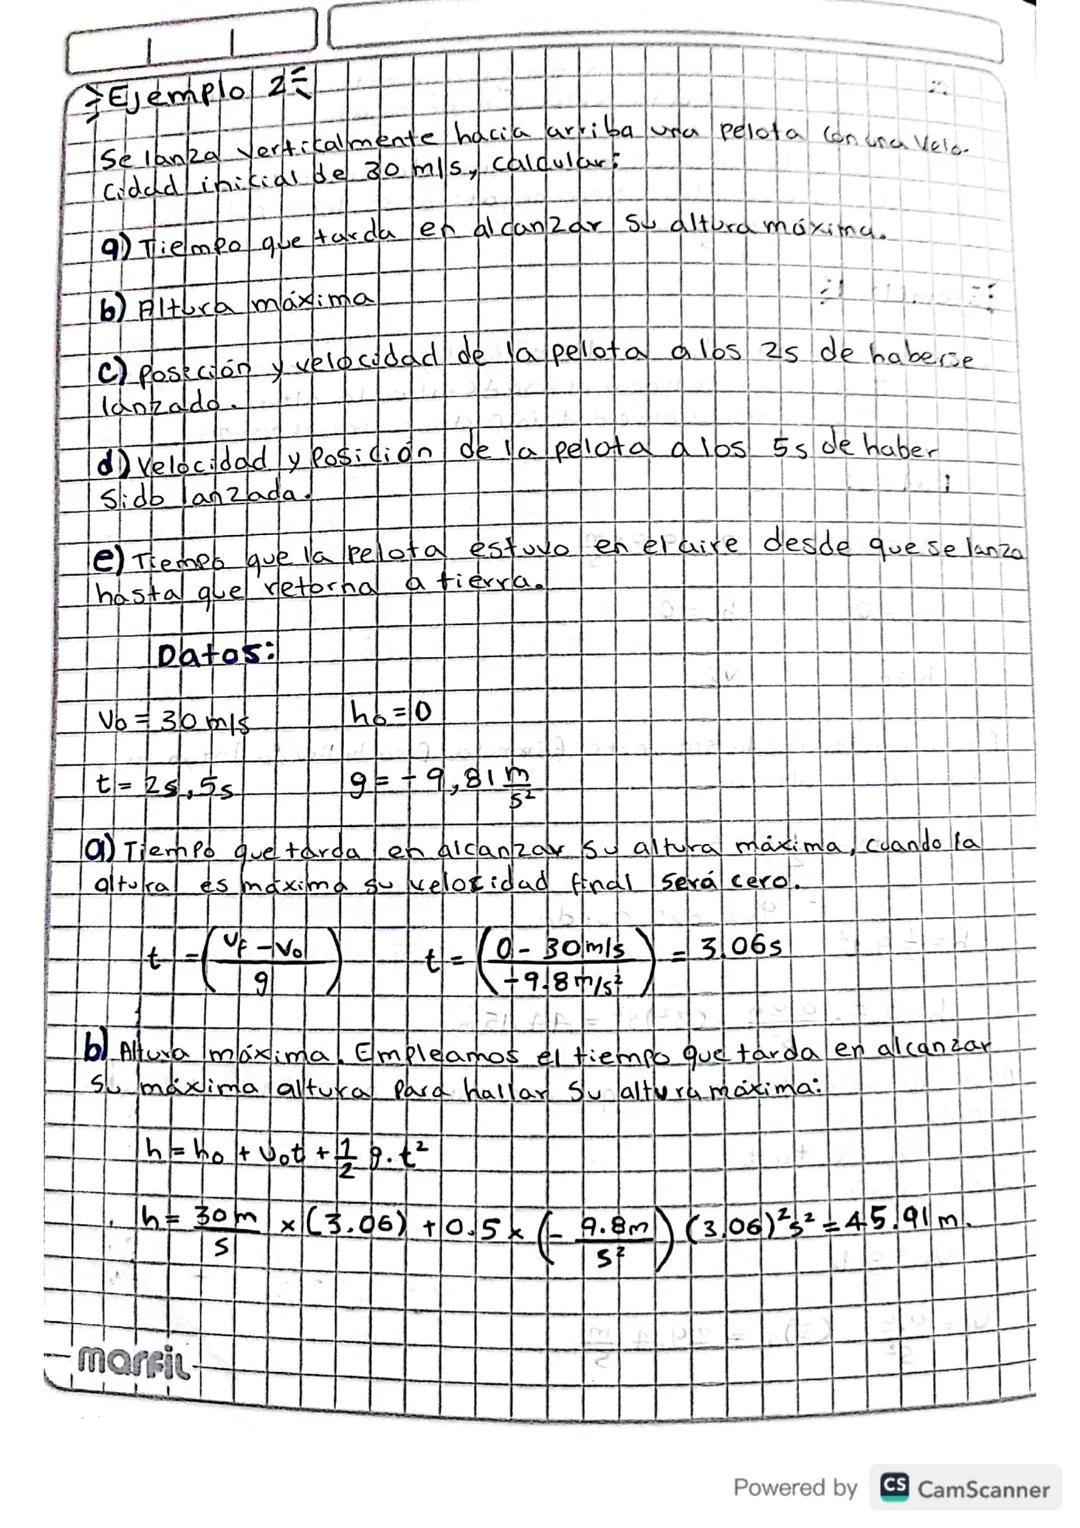 Ejemplo 2
Se lanza verticalmente hacia arriba una pelota con una velo-
cidad inicial de 30 m/s, calcular:
a) Tiempo que tarda en alcanzar su altura máxima.
b) Altura máxima
c) posición y velocidad de la pelota a los 2s de haberse
lanzado.
d) velocidad y posición de la pelota a los 5s de haber
sido lanzada.
e) Tiempo que la pelota estuvo en el aire desde que se lanza
hasta que retorna a tierra.
Datos:
Vo = 30 m/s h₀ = 0
t = 2s, 5s g = -9,81 m/s²
a) Tiempo que tarda en alcanzar su altura máxima, cuando la
altura es máxima su velocidad final será cero.
t = (Vf - Vo / g) t = (0 - 30 m/s / -9.8 m/s²) = 3.06s
b) Altura máxima. Empleamos el tiempo que tarda en alcanzar
su máxima altura para hallar su altura máxima:
h = h₀ + V₀t + 1/2 g.t²
h = 30 m/s × (3.06) + 0.5 × (- 9.8m/s²) (3.06)² s² = 45.91 m.
marfil
Powered by CS CamScanner